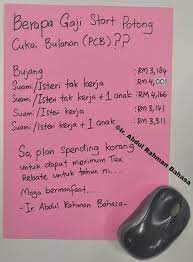 Berapa Gaji Start Potong
Cukai Bulanan (PCB)??
Bujang :RM 3,184
Suami/Isteri tak kerja :RM 4,001
Suami/Isteri tak kerja + 1 anak :RM 4,166
Suami/Isteri kerja :RM 3,141
Suami/Isteri kerja + 1 anak :RM 3,311
So, plan spending korang
untuk dapat maximum Tax
Rebate untuk tahun ni...
Moga bermanfaat...
- Ir. Abdul Rahman Bahasa-
©Ir. Abdul Rahman Bahasa